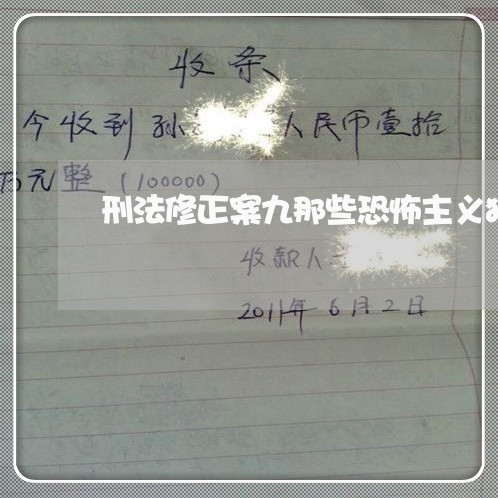 收条
今收到孙 人民币壹拾
万元整(100000)
刑法修正案九那些恐怖主义
收款人
2011年6月2日